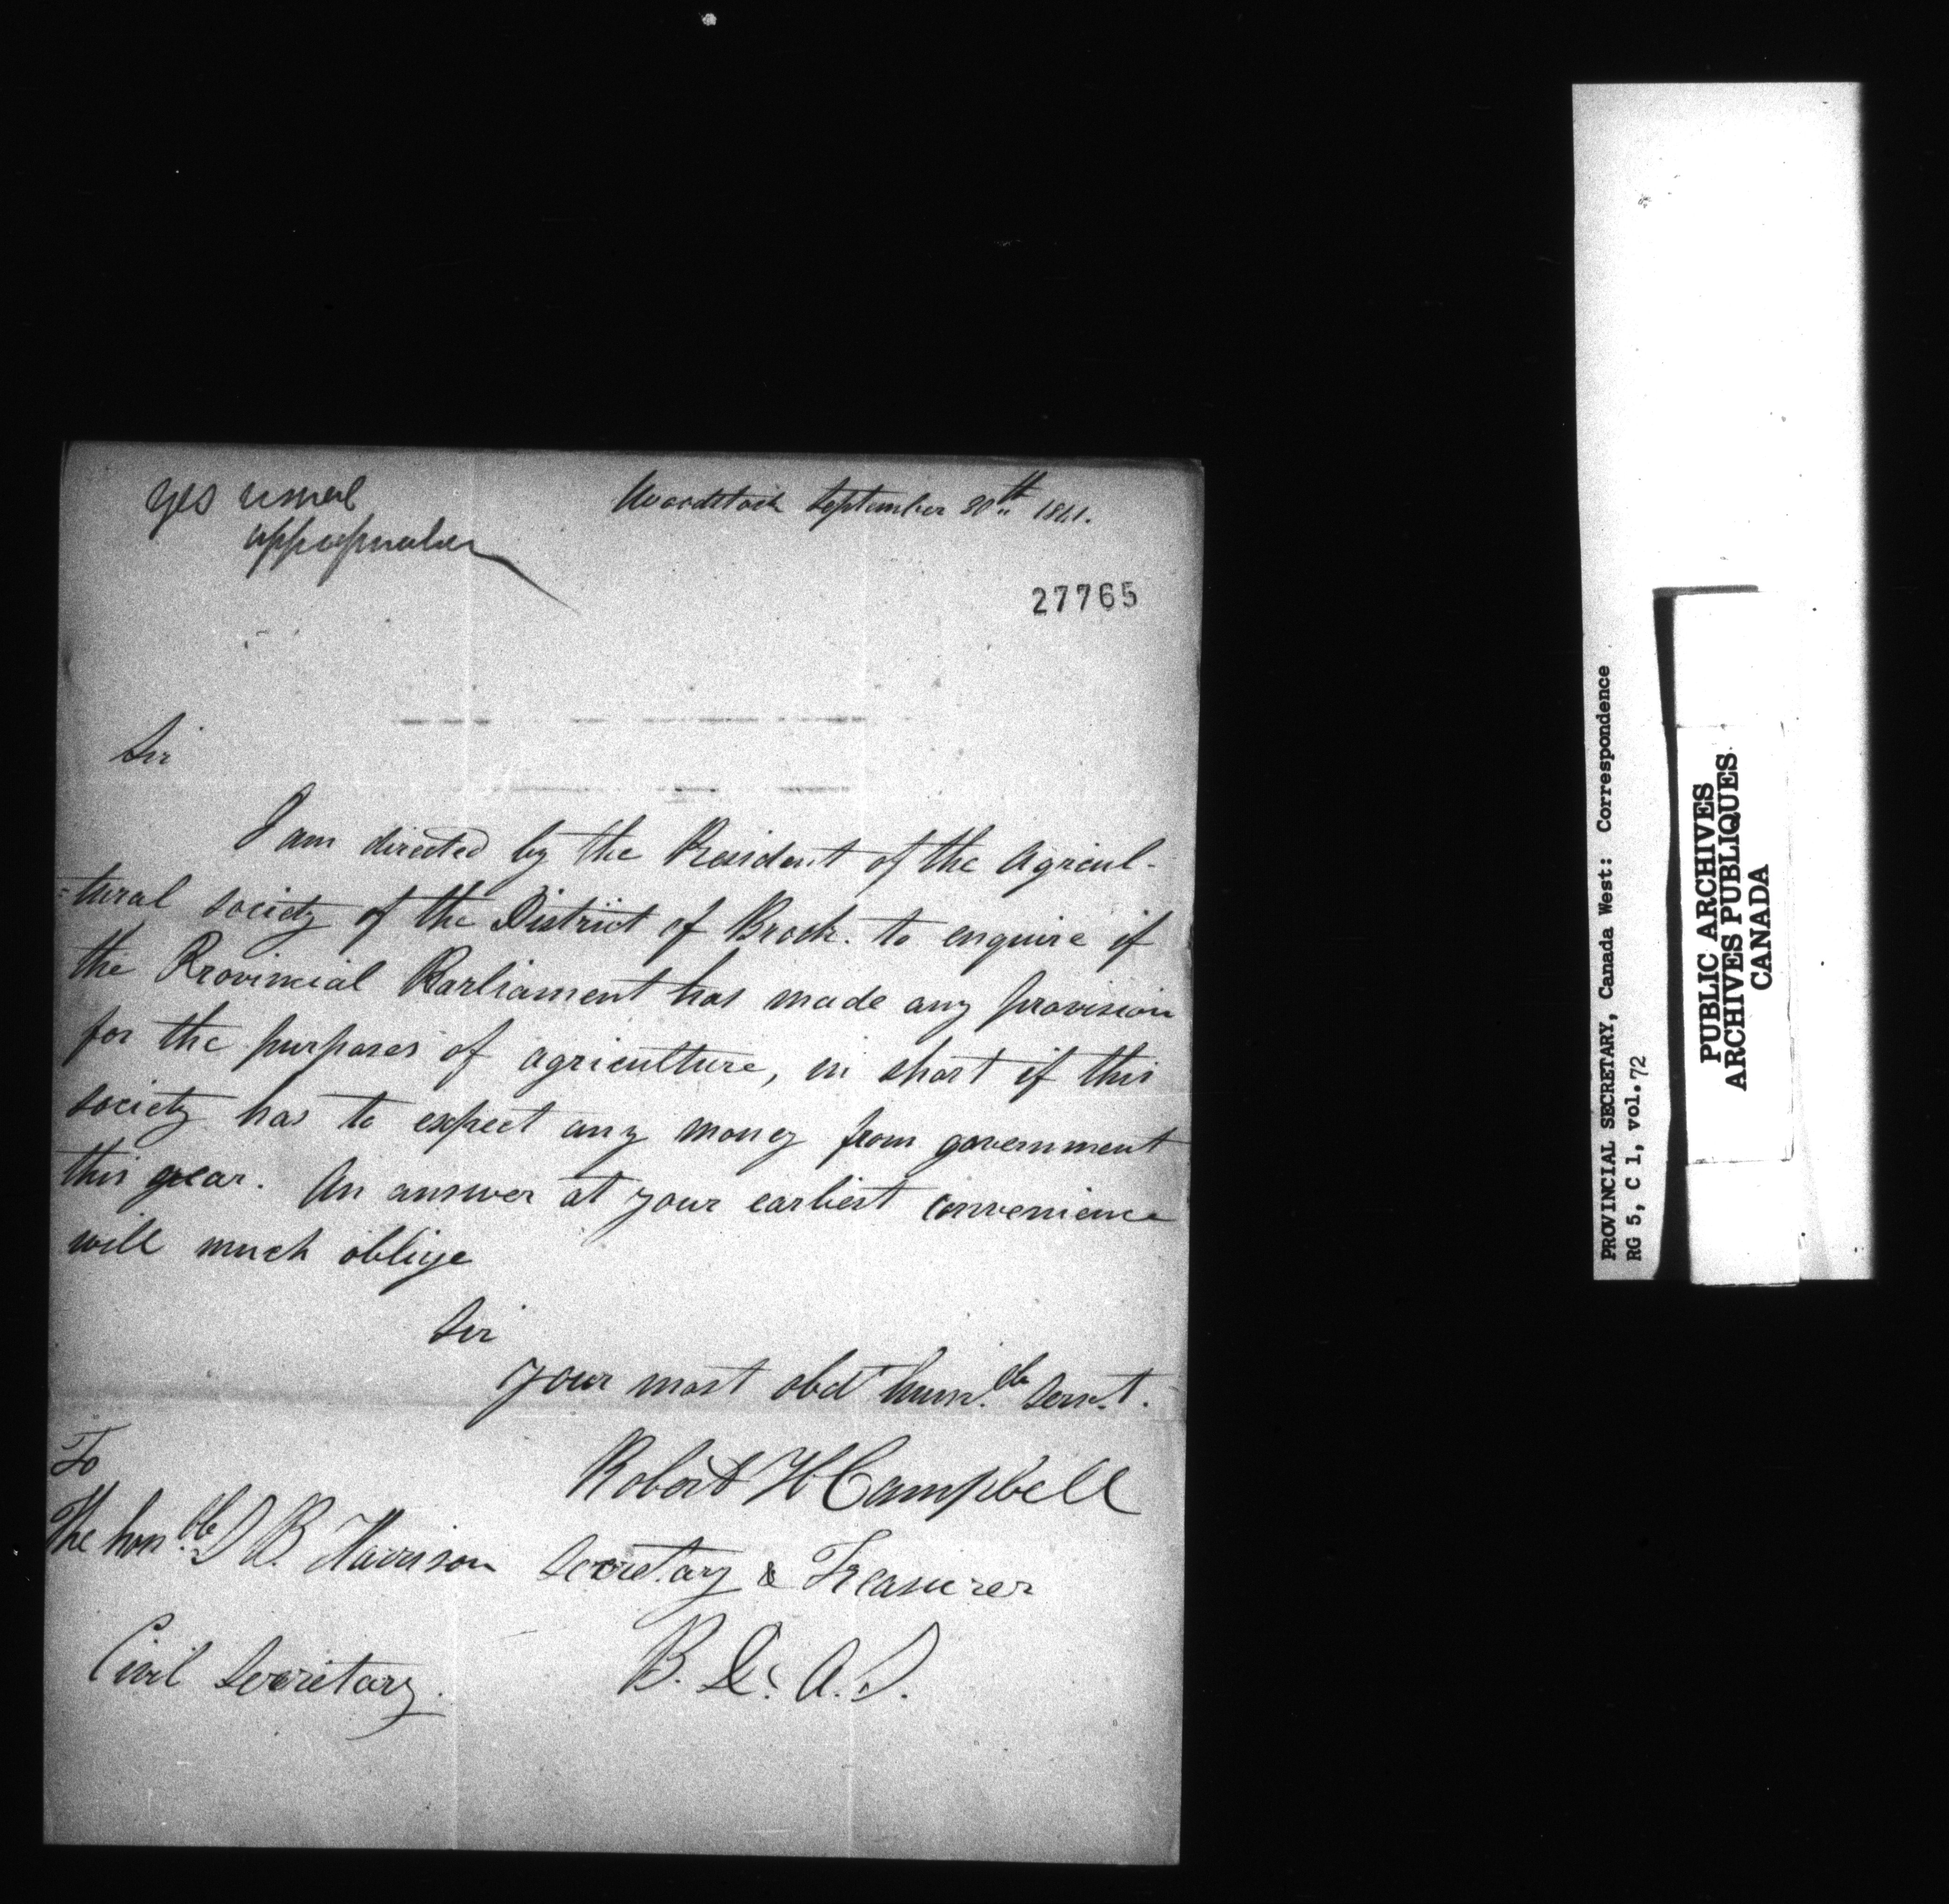 yes usual
appropriation
Woodstock September 30th 1841.
27765
Sir
I am directed by the President of the Agricul-
-tural society of the District of Brock. to enquire if
the Provincial Parliament has made any provision
for the purposes of agriculture, in short if this
society has to expect any money from government
this year. An answer at your earliest convenience
will much oblige
Sir
your most obdt humble servt.
Robert H Campbell
Secretary & Treasurer
B. D. A. S.
To
The honble S B Harrison
Civil Secretary.
PROVINCIAL SECRETARY, Canada West: Correspondence
RG 5, C 1, vol.72
PUBLIC ARCHIVES
ARCHIVES PUBLIQUES
CANADA